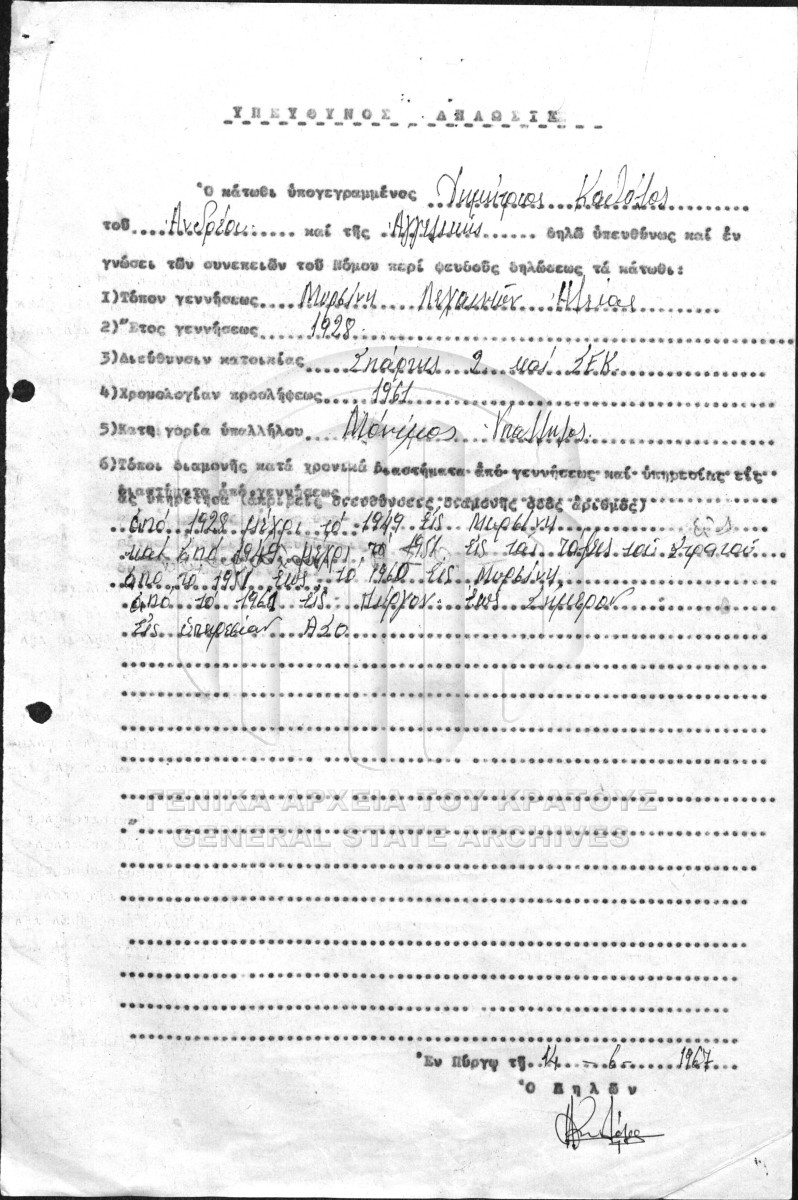 ΥΠΕΥΘΥΝΟΣ ΔΗΛΩΣΙΣ
Ὁ κάτωθι ὑπογεγραμμένος Δημήτριος
τοῦ Ἀνδρέου καί τῆς Ἀγγελικῆς δηλῶ ὑπευθύνως καί ἐν
γνώσει τῶν συνεπειῶν τοῦ Νόμου περί ψευδοῦς δηλώσεως τά κάτωθι:
1)Τόπον γεννήσεως Μυρσίνη Λεχαινῶν Ἠλείας
2)Ἔτος γεννήσεως 1928
3)Διεύθυνσιν κατοικίας Σπάρτης 2 καί ΣΕΚ
4)Χρομολογίαν προσλήψεως 1961
5)Κατηγορία ὑπαλλήλου Μόνιμος Ὑπάλληλος
6)Τόποι διαμονῆς κατά χρονικά διαστήματα ἀπό γεννήσεως καί ὑπηρεσίας εἰς
διαστήματα ἀπό γεννήσεως
ἅς ὑπηρέτησα ἀκριβεῖς διευθύνσεις διαμονῆς ὁδός ἀριθμός)
ἀπό 1928 μέχρι τό 1949 εἰς Μυρσίνη
καί ἀπό 1949 μέχρι τό 1951 εἰς τάς τάξεις τοῦ Στρατοῦ
ἀπό τό 1951 ἕως τό 1960 εἰς Μυρσίνη
ἀπό τό 1961 εἰς Πύργον ἕως Σήμερον
εἰς ὑπηρεσίαν ΑΣΟ
ΓΕΝΙΚΑ ΑΡΧΕΙΑ ΤΟΥ ΚΡΑΤΟΥΣ
GENERAL STATE ARCHIVES
Ἐν Πύργῳ τῇ 14 - 6 - 1967
Ὁ Δηλῶν